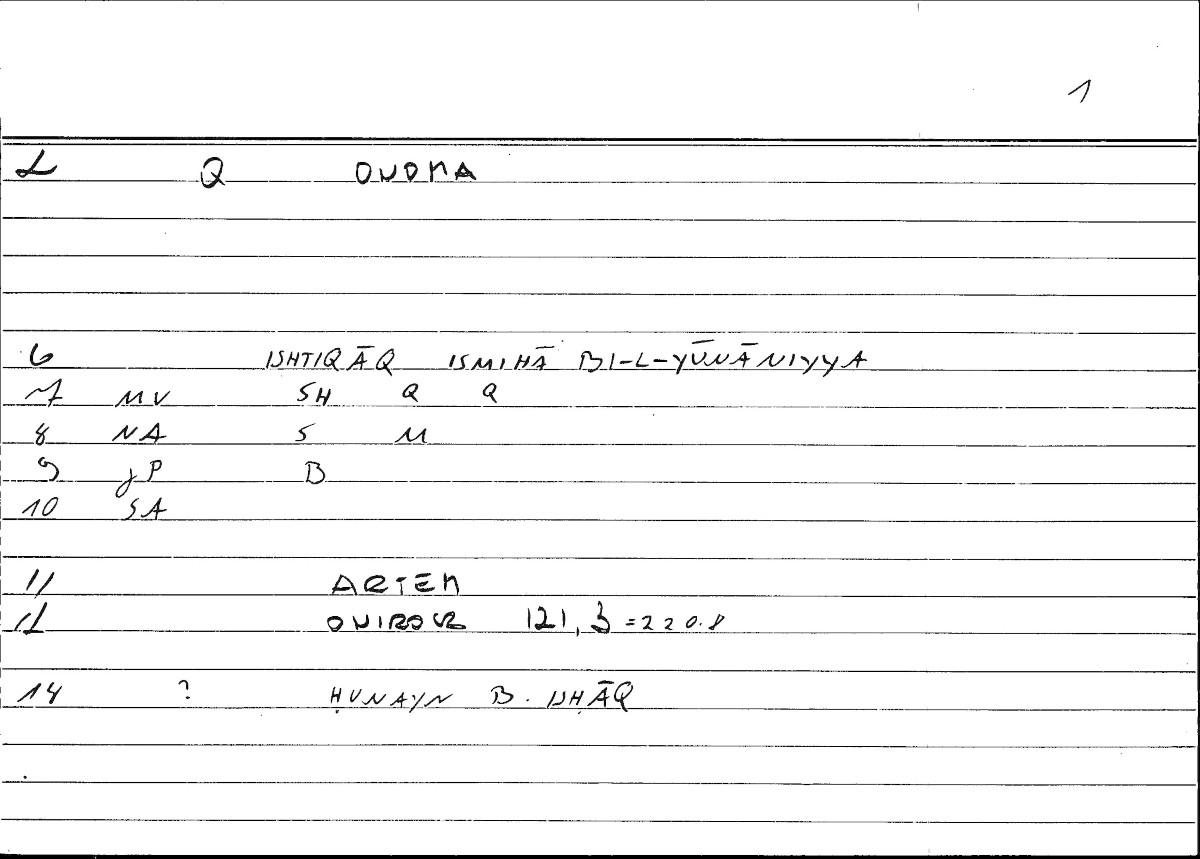 1
2 Q ONOMA
6 ISHTIQĀQ ISMIHĀ BI-L-YŪNĀNIYYA
7 MV SH Q Q
8 NA S M
9 JP B
10 SA
11 ARTEM
12 ONIROCR 121, 3 =220.8
14 ? ḤUNAYN B. ISḤĀQ